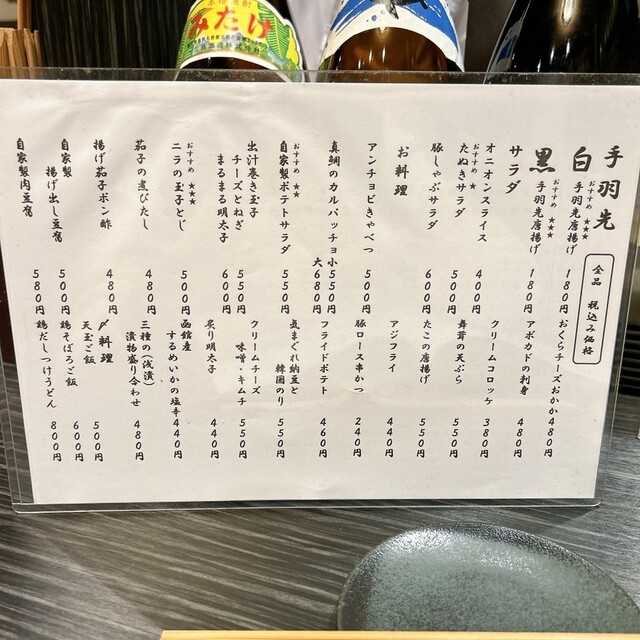 みたけ
手羽先
全品 税込み価格
おすすめ ★★★
白 手羽先唐揚げ 180円
おすすめ ★★★
黒 手羽先唐揚げ 180円
サラダ
オニオンスライス 400円
おすすめ ★
たぬきサラダ 500円
豚しゃぶサラダ 600円
お料理
アンチョビきゃべつ 500円
真鯛のカルパッチョ 小 550円
大 680円
おすすめ ★★★
自家製ポテトサラダ 550円
出汁巻き玉子
チーズとねぎ 550円
まるまる明太子 600円
おすすめ ★★★
ニラの玉子とじ 500円
茄子の煮びたし 480円
揚げ茄子ポン酢 480円
自家製
揚げ出し豆腐 500円
自家製肉豆腐 580円
おくらチーズおかか 480円
アボカドの刺身 480円
クリームコロッケ 380円
舞茸の天ぷら 550円
たこの唐揚げ 550円
アジフライ 440円
豚ロース串かつ 240円
フライドポテト 460円
気まぐれ納豆と
韓国のり 550円
クリームチーズ
味噌・キムチ 550円
炙り明太子 440円
函館産
するめいかの塩辛 440円
三種の(浅漬)
漬物盛り合わせ 480円
〆料理
天玉ご飯 500円
鶏そぼろご飯 600円
鶏だしつけうどん 800円